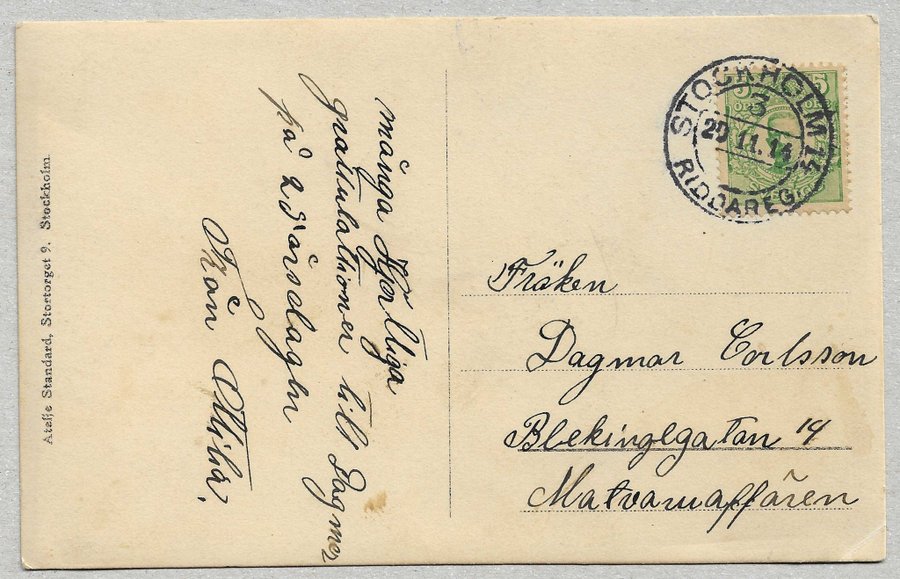 Atelje Standard, Stortorget 9. Stockholm.
många Hjertliga
gratulationer till Dagmar
på 23 årsdagen
från
STOCKHOLM 14
3
29.11.14
RIDDAREG.
5 5
ÖRE
Fröken
Dagmar Corlsson
Blekingegatan 14
Matvaruaffären